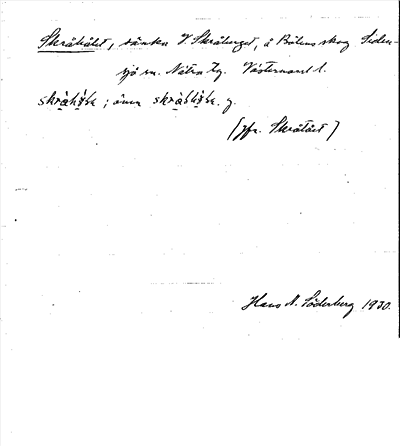 Skråhålet, sänka V. Skråberget, å Bölens skog Siden-
sjö sn. Nätra tg. Västernorrl. l.
skràhɵ̀lə ; även
(jfr. Skråtået)
Hans N. Söderberg 1930.